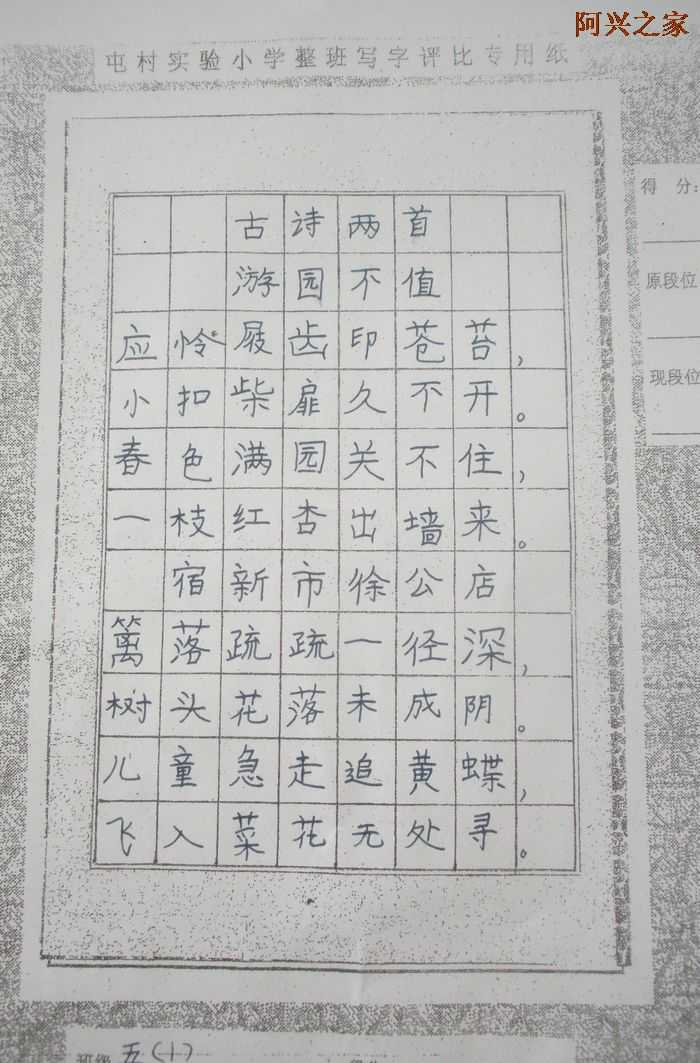 阿兴之家
屯村实验小学整班写字评比专用纸
得 分：
原段位
现段位
古诗两首
游园不值
应怜屐齿印苍苔，
小扣柴扉久不开。
春色满园关不住，
一枝红杏出墙来。
宿新市徐公店
篱落疏疏一径深，
树头花落未成阴。
儿童急走追黄蝶，
飞入菜花无处寻。
班级 五(十)